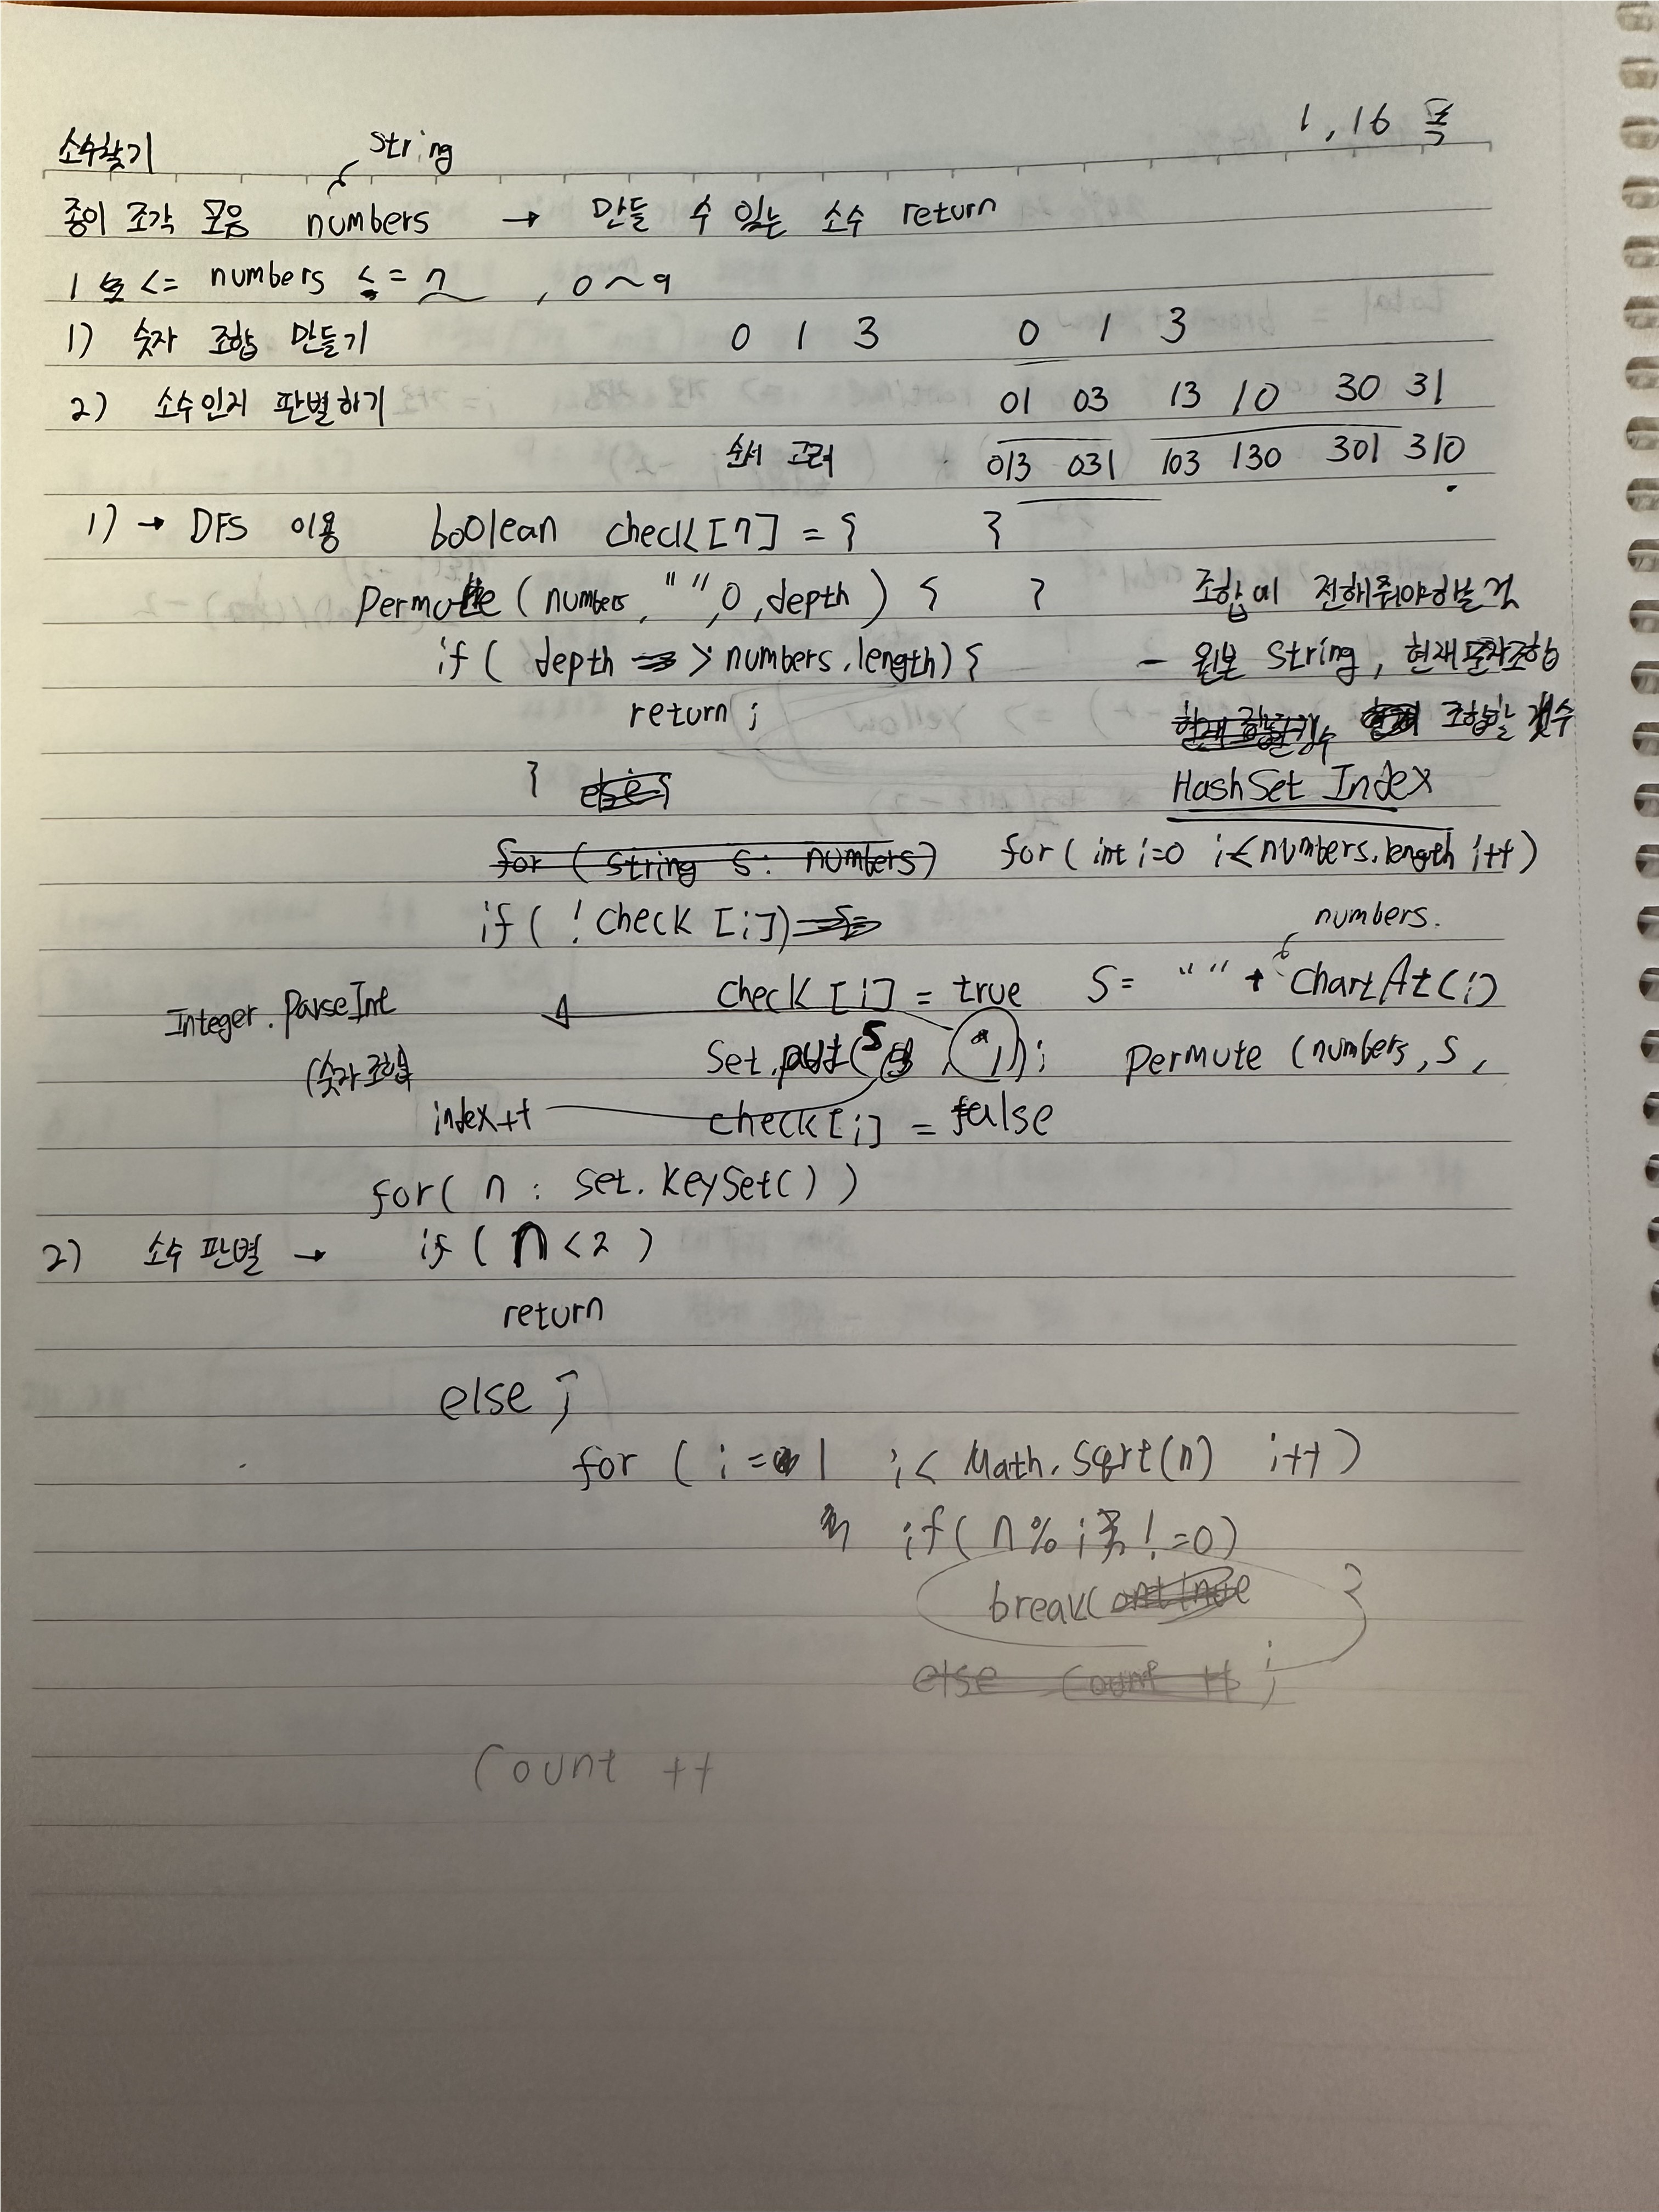 1, 16 목
소수찾기
String
종이 조각 모음 numbers → 만들 수 있는 소수 return
1 <= numbers <= 7 , 0 ~ 9
1) 숫자 조합 만들기 0 1 3 0 1 3
2) 소수인지 판별하기 01 03 13 10 30 31
순서 고려 013 031 103 130 301 310
1) → DFS 이용 boolean check[7] = { }
Permute ( numbers, "", 0, depth ) { } 조합에 전해줘야할 것
if ( depth > numbers.length) { - 원본 String, 현재 문자조합
return ; 조합할 갯수
} HashSet Index
for ( String s : numbers) for ( int i=0 i< numbers.length i++ )
if ( ! check [i])
numbers.
check [i] = true S = "" + ChartAt(i)
Integer. ParseInt
Set.put( S , ); Permute (numbers, S ,
(숫자 조합)
index++ check[i] = false
for( n : set. KeySet( ) )
2) 소수 판별 → if ( n < 2 )
return
else ;
for ( i = 1 i < Math. Sqrt(n) i++ )
if ( n % i != 0)
break }
else count ++ ;
Count ++